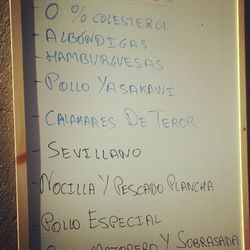 - 0 % COLESTEROL
- ALBÓNDIGAS
- HAMBURGUESAS
- POLLO YASAKAWI
- CALAMARES DE TEROR
- SEVILLANO
- NOCILLA Y PESCADO PLANCHA
- POLLO ESPECIAL
MOJOPERO Y SOBRASADA